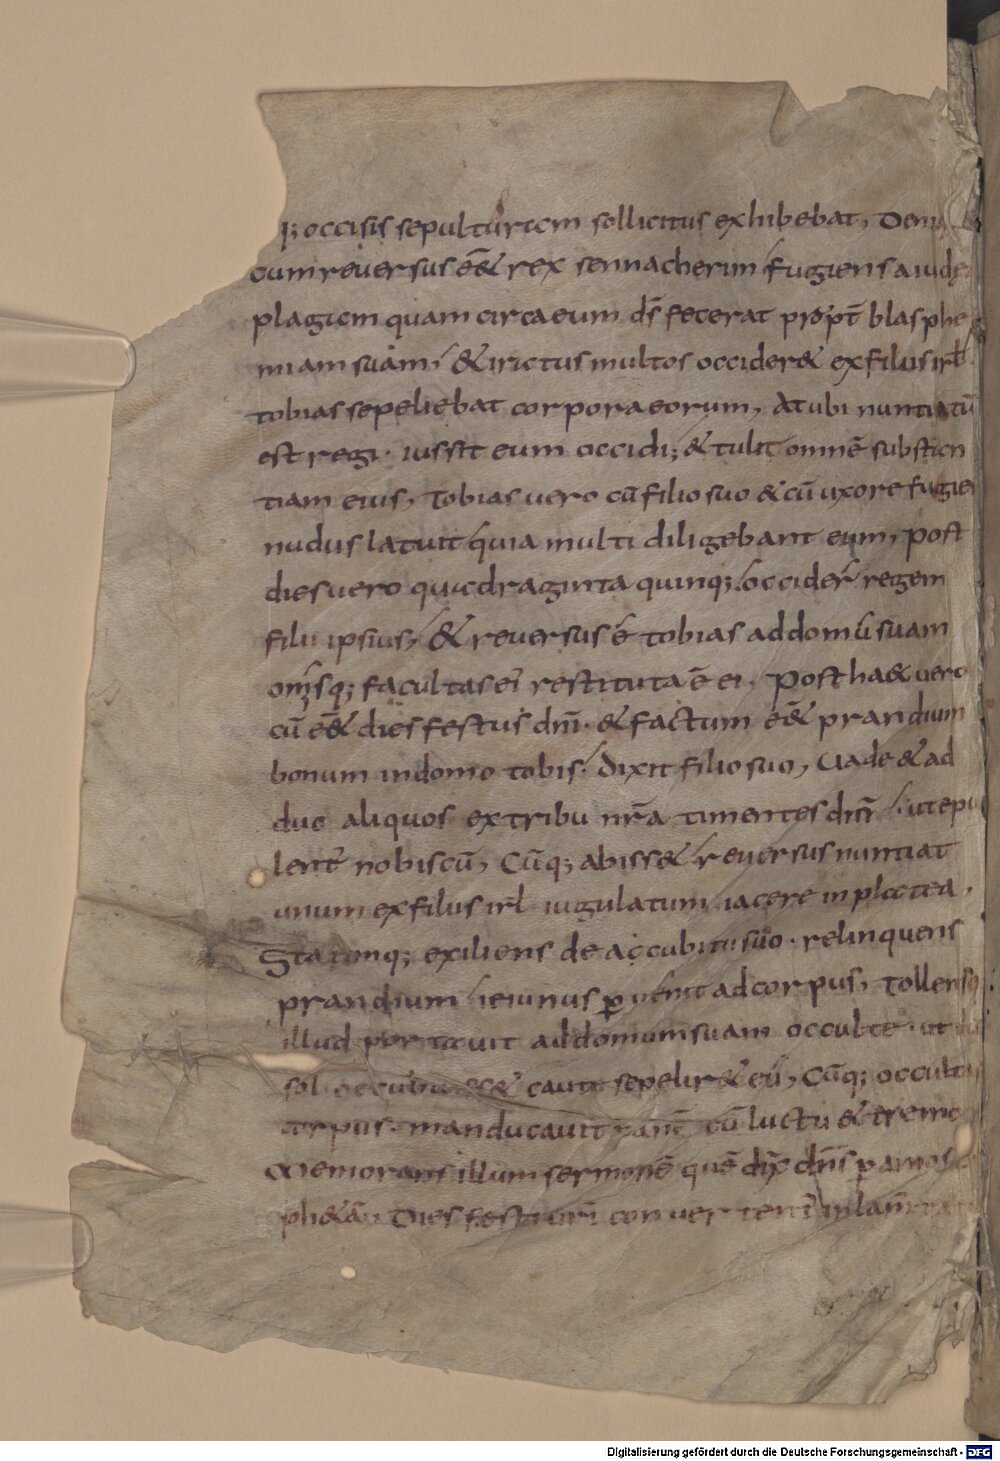 occisis sepulturam sollicitus exhibebat, Deniq
cum reuersus eēt rex sennacherim fugiens a iudea
plagam quam circa eum ds̄ fecerat propt̄ blasphe
miam suam, & iratus multos occider& exfiliis irl̄
tobias sepeliebat corpora eorum, At ubi nuntiatū
est regi· iussit eum occidi; & tulit omnē substan
tiam eius, Tobias uero cū filio suo & cū uxore fugien
nudus latuit quia multi diligebant eum, post
dies uero quadraginta quinq; occider̄ regem
filii ipsius, & reuersus ē tobias ad domū suam
omīsq; facultas ei restituta ē ei, Post ha& uero
cū eē& dies festus dnī· & factum eē& prandium
bonum in domo tobis· dixit filio suo, Uade & ad
duc aliquos ex tribu nr̄a timentes dnm̄ · ut epu
lent̄ nobiscū, Cūq; abiss& reuersus nuntiat
unum exfiliis irl̄ iugulatum iacere in platea,
Statimq; exiliens de accubitu suo· relinquens
prandium ieiunus puenit ad corpus, Tollensq
illud portauit ad domum suam occulte· ut dū
sol occubuiss& caute sepelir& eū, Cūq; occult
corpus· manducauit cū luctu & tremo
Memorans illum sermonē quē dix̄ dns̄ p amos
ph&ā, Dies festi uri conuertent̄ in lam
Digitalisierung gefördert durch die Deutsche Forschungsgemeinschaft - DFG